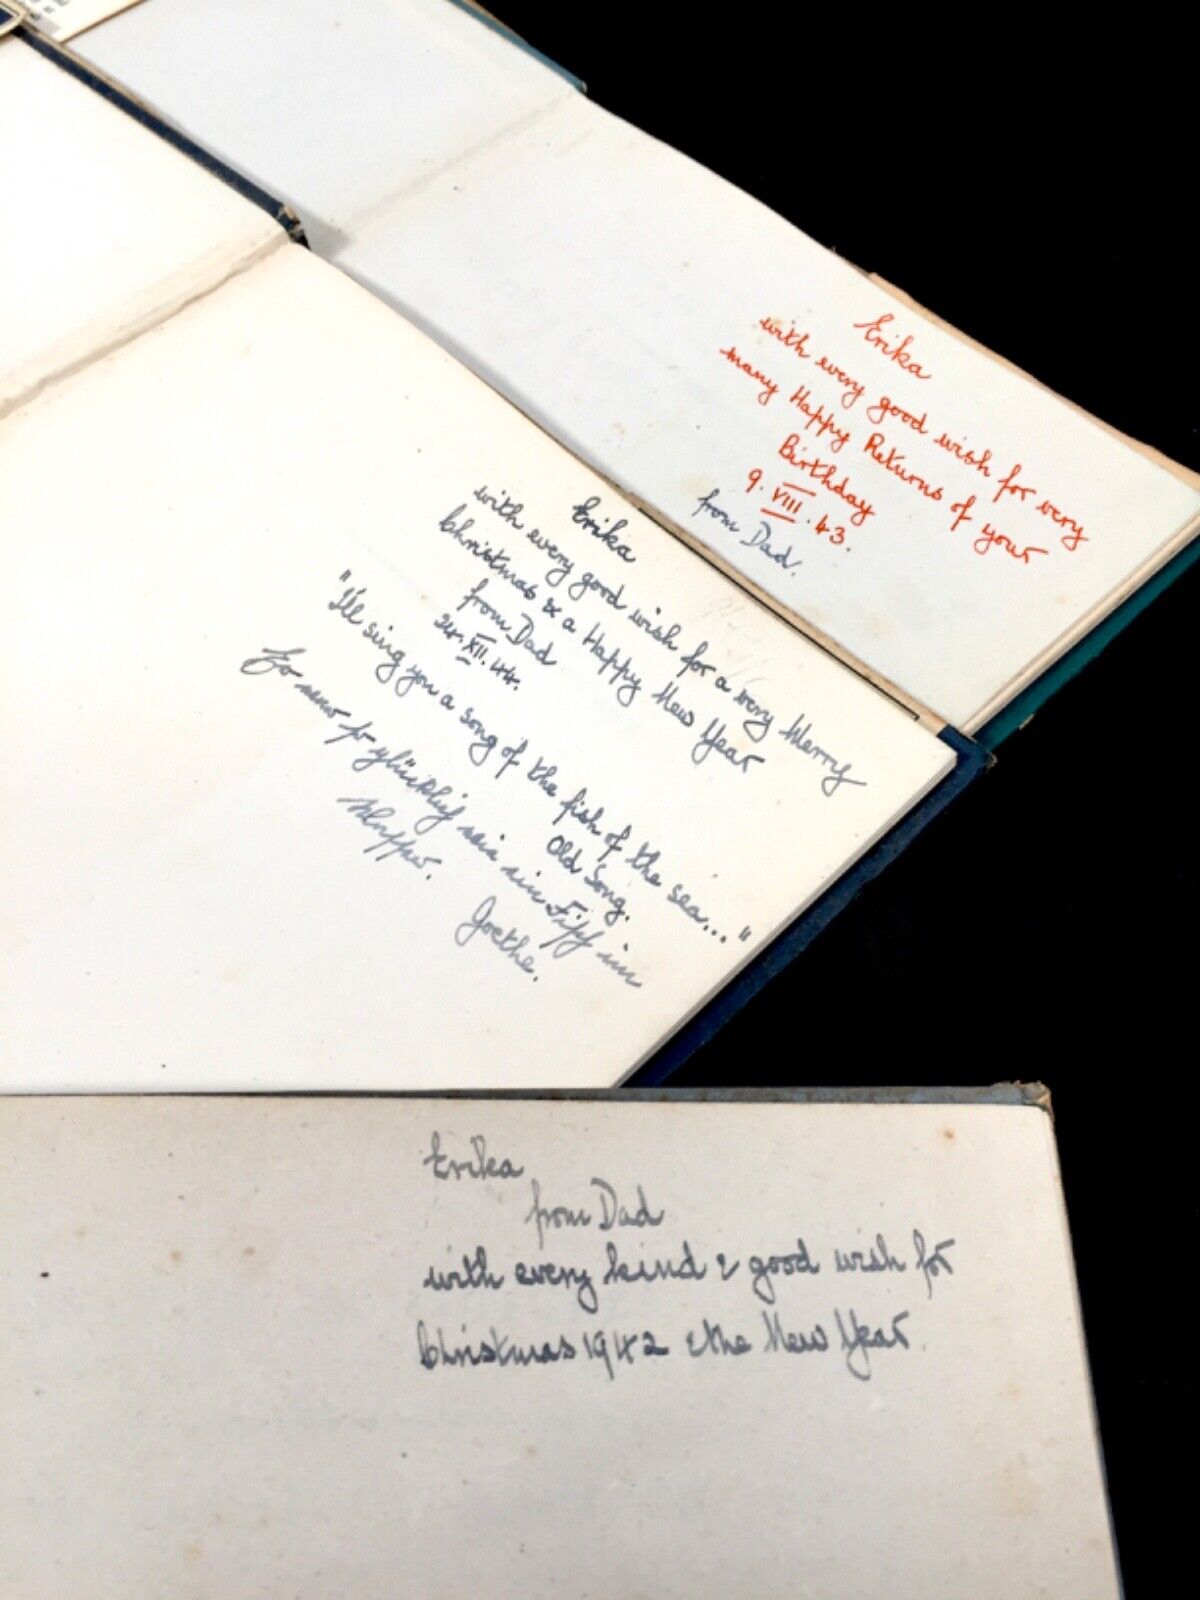 Erika
with every good wish for very
many Happy Returns of your
Birthday
9. VIII. 43.
from Dad.
Erika
with every good wish for a very Merry
Christmas & a Happy New Year
from Dad
24. XII. 44.
"I'll sing you a song of the fish of the sea..."
Old Song.
So wär so glücklich sein ein Fisch im
Wasser.
Goethe.
Erika
from Dad
with every kind & good wish for
Christmas 1942 & the New Year.